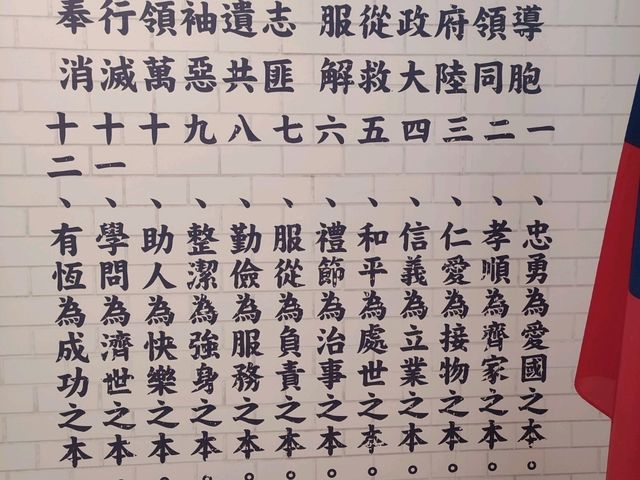 奉行領袖遺志 服從政府領導
消滅萬惡共匪 解救大陸同胞
一、忠勇為愛國之本。
二、孝順為齊家之本。
三、仁愛為接物之本。
四、信義為立業之本。
五、和平為處世之本。
六、禮節為治事之本。
七、服從為負責之本。
八、勤儉為服務之本。
九、整潔為強身之本。
十、助人為快樂之本。
十一、學問為濟世之本。
十二、有恆為成功之本。